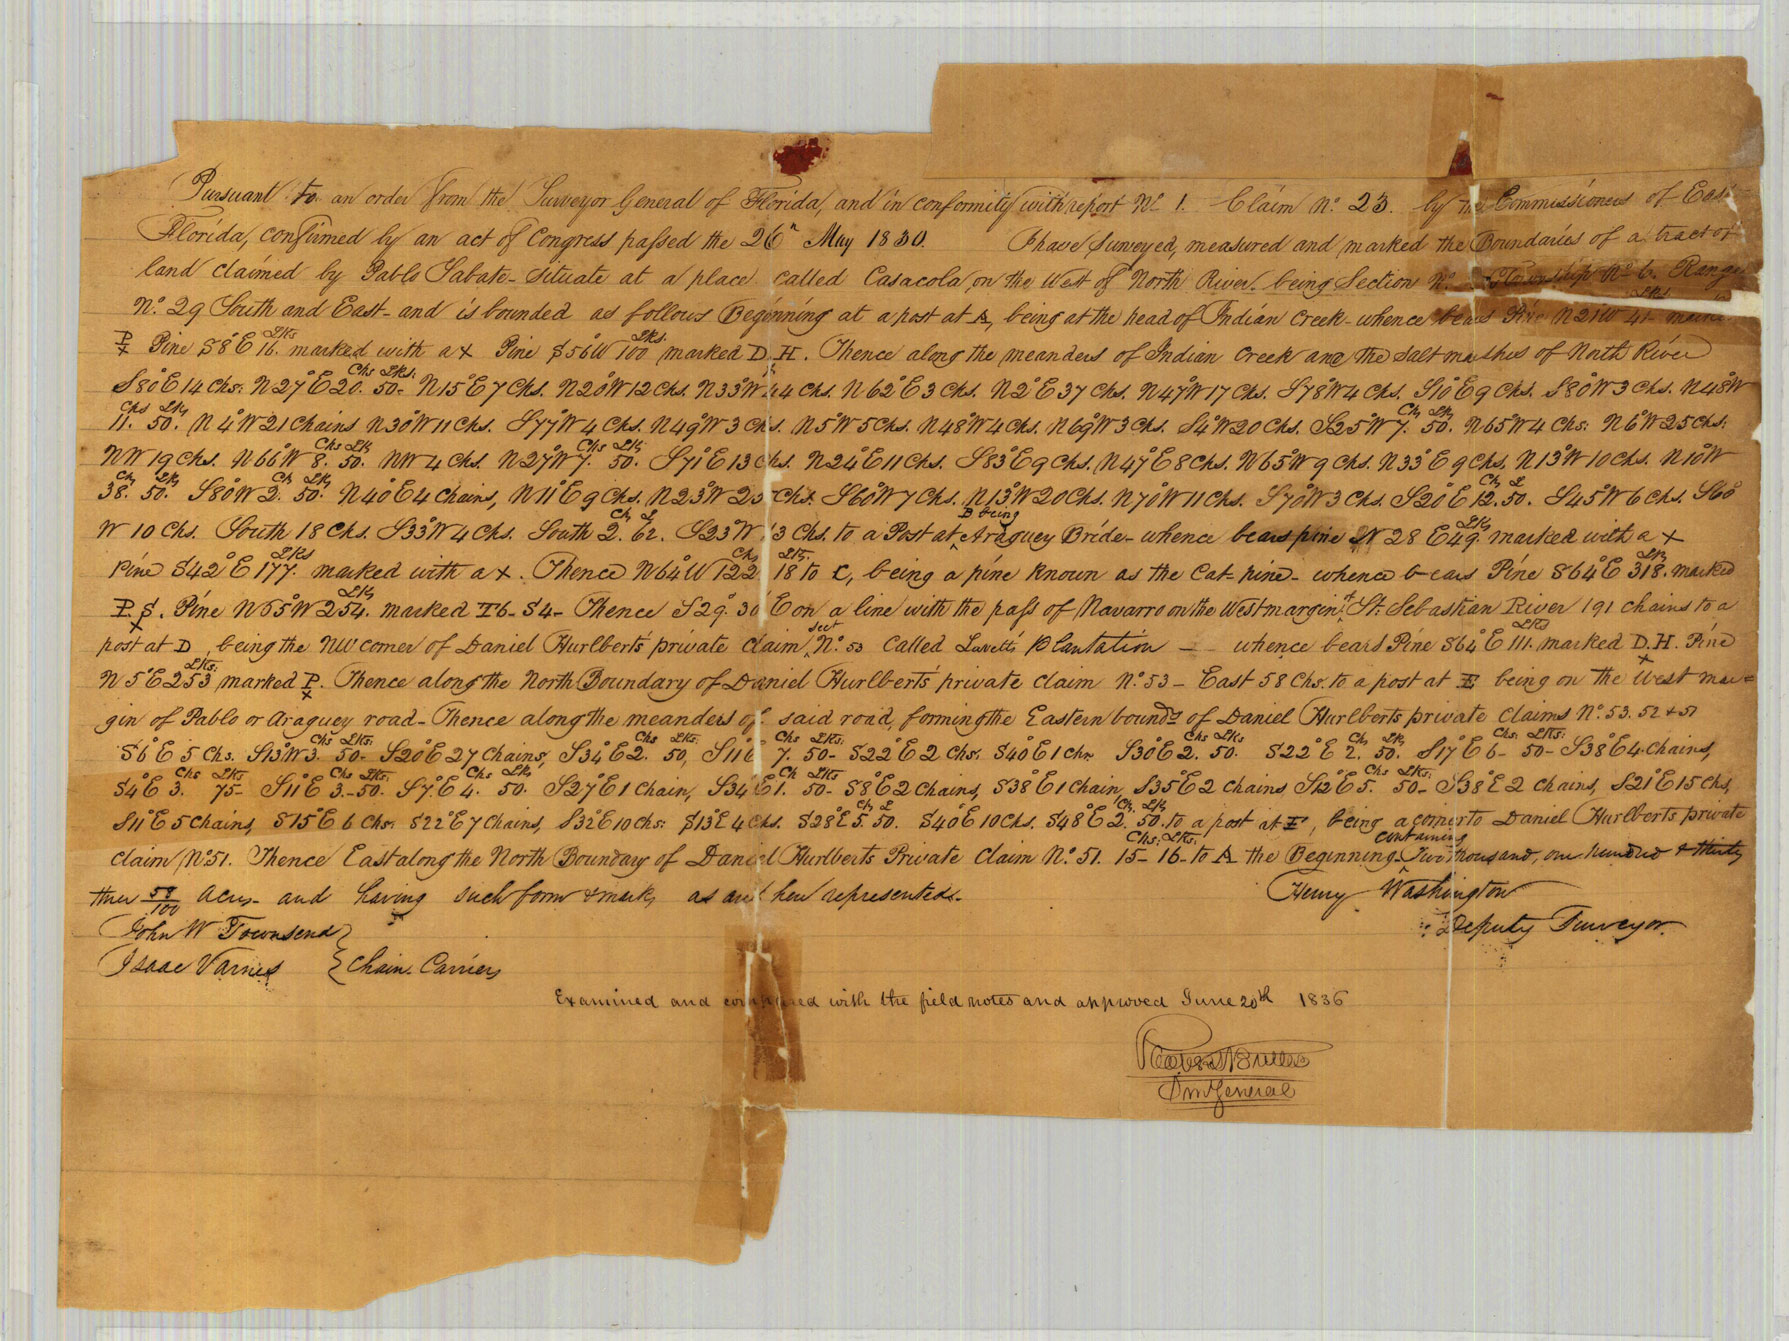 Pursuant to an order from the Surveyor General of Florida, and in conformity with report No 1. Claim No. 23. by the Commissioners of East
Florida, confirmed by an act of Congress passed the 26th May 1830. I have surveyed, measured and marked the Boundaries of a tract of
land claimed by Pablo Sabate - situate at a place called Casacola, on the West of North River, being Section No. Township No. 6. Range
No. 29 South and East - and is bounded as follows Beginning at a post at A, being at the head of Indian Creek - whence bears Pine N21W 41 Lks
P x Pine S8°E 16 Lks. marked with a x Pine S56°W 100 Lks. marked D.H. Thence along the meanders of Indian Creek and the Salt marshes of North River
S80°E 14 Chs. N27°E 20 Chs 50 Lks. N15°E 7 Chs. N20°W 12 Chs. N33°W 44 Chs. N62°E 3 Chs. N2°E 37 Chs. N47°W 17 Chs. S78°W 4 Chs. S10°E 9 Chs. S80°W 3 Chs. N48°W
11 Chs 50 Lks. N4°W 21 Chains N30°W 11 Chs. S77°W 4 Chs. N49°W 3 Chs. N5°W 5 Chs. N48°W 4 Chs. N69°W 3 Chs. S4°W 20 Chs. S25°W 7 Ch 50 Lk. N65°W 4 Chs. N6°W 25 Chs.
NW 19 Chs. N66°W 8 Chs 50 Lk. NW 4 Chs. N27°W 7 Chs 50 Lk. S71°E 13 Chs. N24°E 11 Chs. S83°E 9 Chs. N47°E 8 Chs. N65°W 9 Chs. N33°E 9 Chs. N13°W 10 Chs. N10°W
38 Ch 50 Lk. S80°W 2 Ch 50 Lk. N40°E 4 Chains, N11°E 9 Chs. N23°W 25 Chs. S60°W 7 Chs. N13°W 20 Chs. N70°W 11 Chs. S70°W 3 Chs. S20°E 12 Ch 50 L. S45°W 6 Chs. S60°
W 10 Chs. South 18 Chs. S33°W 4 Chs. South 2 Ch 62 L. S23°W 13 Chs. to a Post at B being Araguey Bride - whence bears pine N 28 E 49 Lk. marked with a x
Pine S42°E 177 Lks. marked with a x. Thence N64°W 122 Chs 18 Lk. to C, being a pine known as the Cat-pine - whence bears Pine S64°E 318 Lk. marked
P.S. x Pine N65°W 254 Lk. marked T6 - S4 - Thence S29°. 30 E on a line with the pass of Navarro on the West margin of St. Sebastian River 191 chains to a
post at D, being the NW corner of Daniel Hurlbert's private claim Sect No. 53 Called Lavetts Plantation - whence bears Pine S64°E 111 Lks. marked D.H. x Pine
N5°E 253 Lks. marked P. x Thence along the North Boundary of Daniel Hurlbert's private claim No. 53 - East 58 Chs. to a post at E being on the West mar=
gin of Pablo or Araguey road - Thence along the meanders of said road, forming the Eastern boundy of Daniel Hurlberts private claims No. 53. 52 & 51
S6°E 5 Chs. S13°W 3 Chs 50 Lks. S20°E 27 Chains, S34°E 2 Chs 50 Lks, S11°E 7 Chs 50 Lks - S22°E 2 Chs. S40°E 1 Chn S30°E 2 Chs 50 Lks S22°E 2 Ch 50 Lk. S17°E 6 Chs 50 Lks - S38°E 4 Chains,
S4°E 3 Chs 75 Lks - S11°E 3 Chs 50 Lks. S7°E 4 Chs 50 Lk. S27°E 1 Chain, S34°E 1 Ch 50 Lks - S8°E 2 Chains, S38°E 1 Chain, S35°E 2 Chains S12°E 5 Chs 50 Lks - S38°E 2 Chains, S21°E 15 Chs,
S11°E 5 Chains, S15°E 6 Chs. S22°E 7 Chains, S32°E 10 Chs. S13°E 4 Chs. S28°E 5 Ch 50 L. S40°E 10 Chs. S48°E 2 Ch 50 Lk. to a post at F, being a corner to Daniel Hurlberts private
claim No. 51. Thence East along the North Boundary of Daniel Hurlberts Private Claim No. 51. 15 Chs 16 Lks - to A the Beginning - containing Two thousand, one hundred & thirty
three 58/100 Acres - and having such form & mark, as are here represented.
Henry Washington
Deputy Surveyor.
John W Townsend
Isaac Varnes } Chain Carriers
Examined and compared with the field notes and approved June 20th 1836
Robert Butler
Sur General